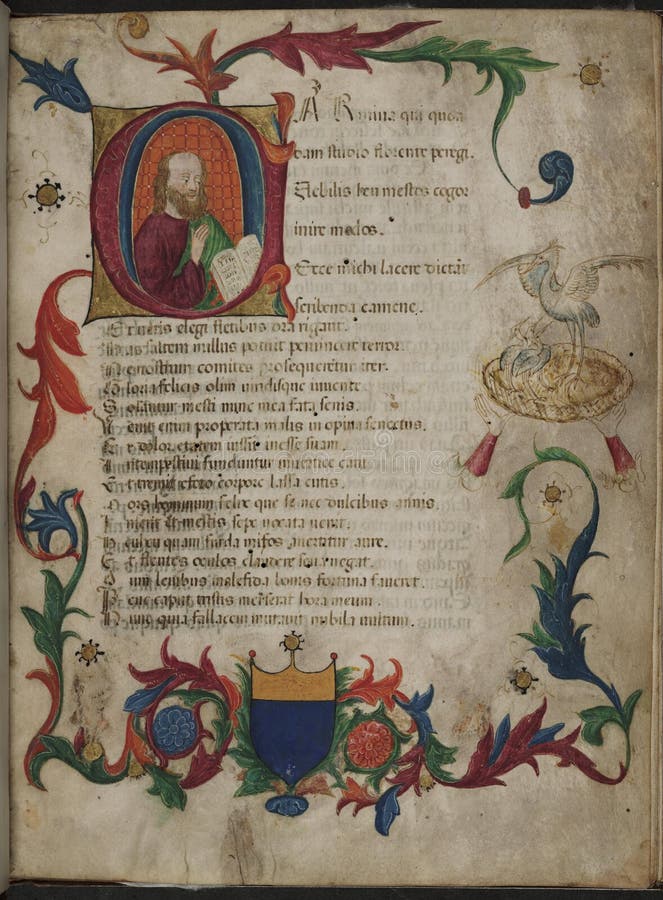 CARmina qui quon
dam studio florente peregi.
Flebilis heu mestos cogor
inire modos.
Ecce michi lacere dictāt
scribenda camene.
Et ueris elegi fletibus ora rigant.
Has saltem nullus potuit peruincere terror
Ne nostrum comites prosequeretur iter.
Gloria felicis olim uiridisque iuuente
Solantur mesti nunc mea fata senis.
Venit enim properata malis inopina senectus.
Et dolor etatem iussit inesse suam.
Intempestiui funduntur uertice cani
Et tremit effeto corpore lassa cutis.
Mors hominum felix que se nec dulcibus annis
Inserit et mestis sepe uocata uenit.
Heu heu quam surda miseros auertitur aure.
Et flentes oculos claudere seua negat.
Dum leuibus malefida bonis fortuna faueret.
Pene caput tristis merserat hora meum.
Nunc quia fallacem mutauit nubila uultum.